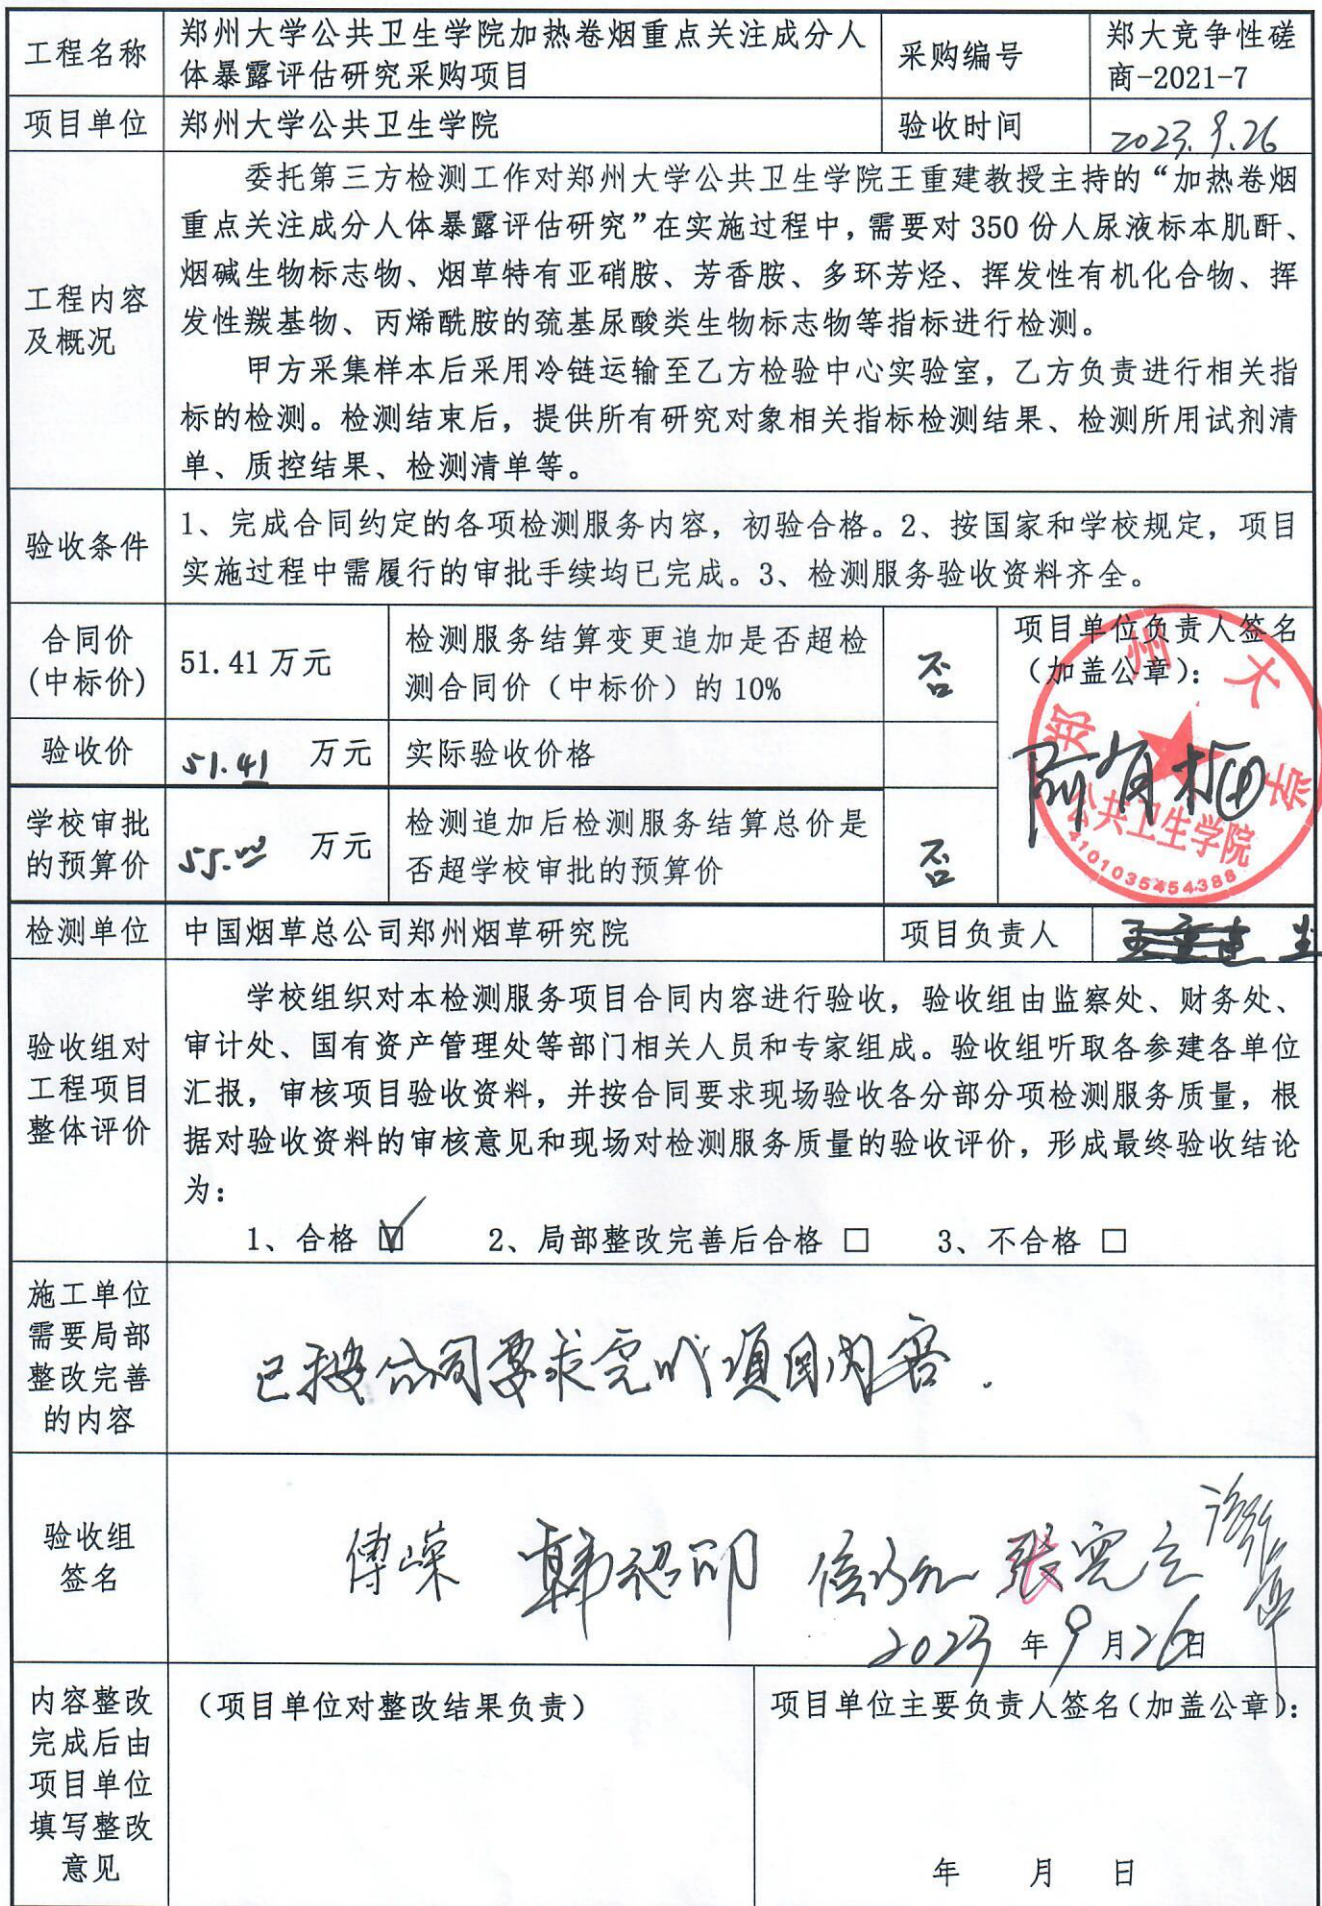 工程名称
郑州大学公共卫生学院加热卷烟重点关注成分人
体暴露评估研究采购项目
采购编号
郑大竞争性磋
商-2021-7
项目单位
郑州大学公共卫生学院
验收时间
2023.9.26
工程内容
及概况
委托第三方检测工作对郑州大学公共卫生学院王重建教授主持的“加热卷烟
重点关注成分人体暴露评估研究”在实施过程中，需要对 350 份人尿液标本肌酐、
烟碱生物标志物、烟草特有亚硝胺、芳香胺、多环芳烃、挥发性有机化合物、挥
发性羰基物、丙烯酰胺的巯基尿酸类生物标志物等指标进行检测。
甲方采集样本后采用冷链运输至乙方检验中心实验室，乙方负责进行相关指
标的检测。检测结束后，提供所有研究对象相关指标检测结果、检测所用试剂清
单、质控结果、检测清单等。
验收条件
1、完成合同约定的各项检测服务内容，初验合格。2、按国家和学校规定，项目
实施过程中需履行的审批手续均已完成。3、检测服务验收资料齐全。
合同价
(中标价)
51.41 万元
检测服务结算变更追加是否超检
测合同价（中标价）的 10%
否
项目单位负责人签名
（加盖公章）：
郑州大学
公共卫生学院
4101035454388
验收价
51.41 万元
实际验收价格
学校审批
的预算价
55.00 万元
检测追加后检测服务结算总价是
否超学校审批的预算价
否
检测单位
中国烟草总公司郑州烟草研究院
项目负责人
验收组对
工程项目
整体评价
学校组织对本检测服务项目合同内容进行验收，验收组由监察处、财务处、
审计处、国有资产管理处等部门相关人员和专家组成。验收组听取各参建各单位
汇报，审核项目验收资料，并按合同要求现场验收各分部分项检测服务质量，根
据对验收资料的审核意见和现场对检测服务质量的验收评价，形成最终验收结论
为：
1、合格 ☑ 2、局部整改完善后合格 □ 3、不合格 □
施工单位
需要局部
整改完善
的内容
已按合同要求完成项目内容.
验收组
签名
2023 年 9 月 26 日
内容整改
完成后由
项目单位
填写整改
意见
（项目单位对整改结果负责）
项目单位主要负责人签名（加盖公章）：
年 月 日